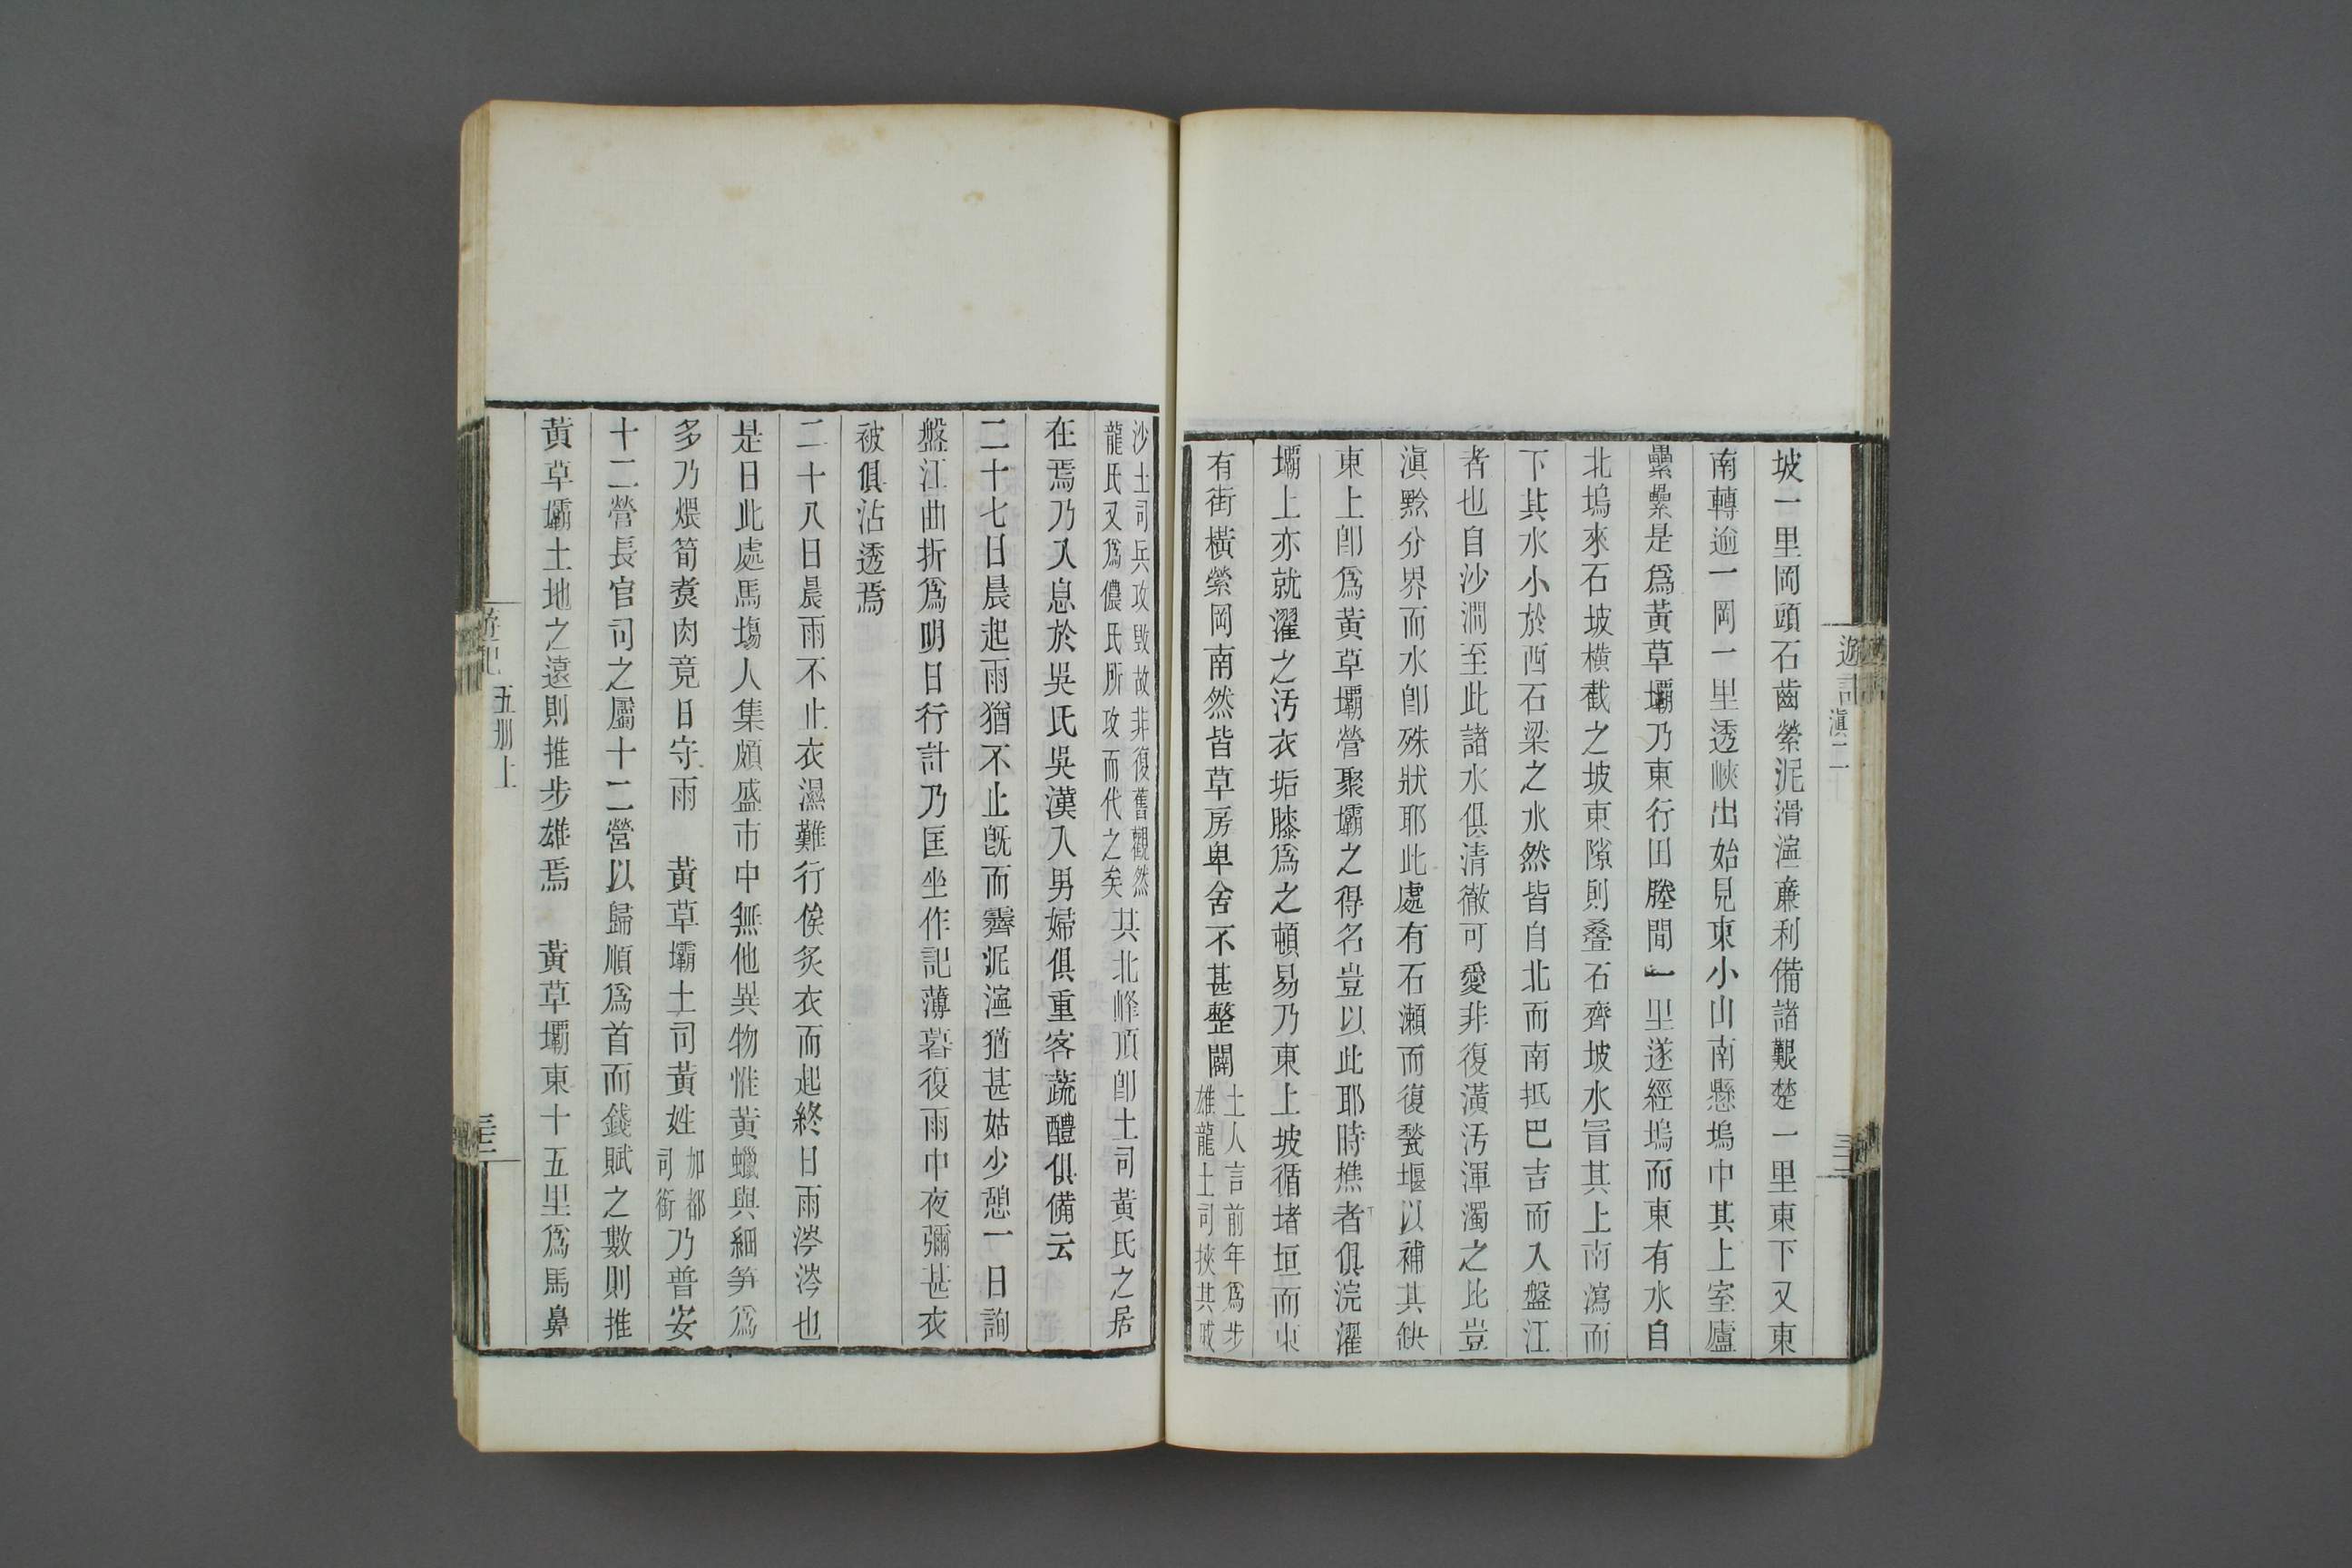 遊記 滇二
坡一里岡頭石齒縈泥滑濘廉利備諸艱楚一里東下又東
南轉逾一岡一里透峽出始見東小山南懸塢中其上室廬
纍纍是爲黃草壩乃東行田塍間一里遂經塢而東有水自
北塢來石坡橫截之坡東隙則叠石齊坡水冒其上南瀉而
下其水小於西石梁之水然皆自北而南抵巴吉而入盤江
者也自沙澗至此諸水俱清徹可愛非復潢汚渾濁之比豈
滇黔分界而水卽殊狀耶此處有石瀨而復甃堰以補其缺
東上卽爲黃草壩營聚壩之得名豈以此耶時樵者俱浣濯
壩上亦就濯之汚衣垢膝爲之頓易乃東上坡循堵垣而東
有街橫縈岡南然皆草房卑舍不甚整闢土人言前年爲步雄龍土司挾其戚
沙土司兵攻毀故非復舊觀然龍氏又爲儂氏所攻而代之矣其北峰頂卽土司黃氏之居
在焉乃入息於吳氏吳漢人男婦俱重客蔬醴俱備云
二十七日晨起雨猶不止旣而霽泥濘猶甚姑少憩一日詢
盤江曲折爲明日行計乃匡坐作記薄暮復雨中夜彌甚衣
被俱沾透焉
二十八日晨雨不止衣濕難行俟炙衣而起終日雨涔涔也
是日此處馬塲人集頗盛市中無他異物惟黃蠟與細笋爲
多乃煨筍煑肉竟日守雨　黃草壩土司黃姓加都司銜乃普安
十二營長官司之屬十二營以歸順爲首而錢賦之數則推
黃草壩土地之遠則推步雄焉　黃草壩東十五里爲馬鼻
遊記 五册上